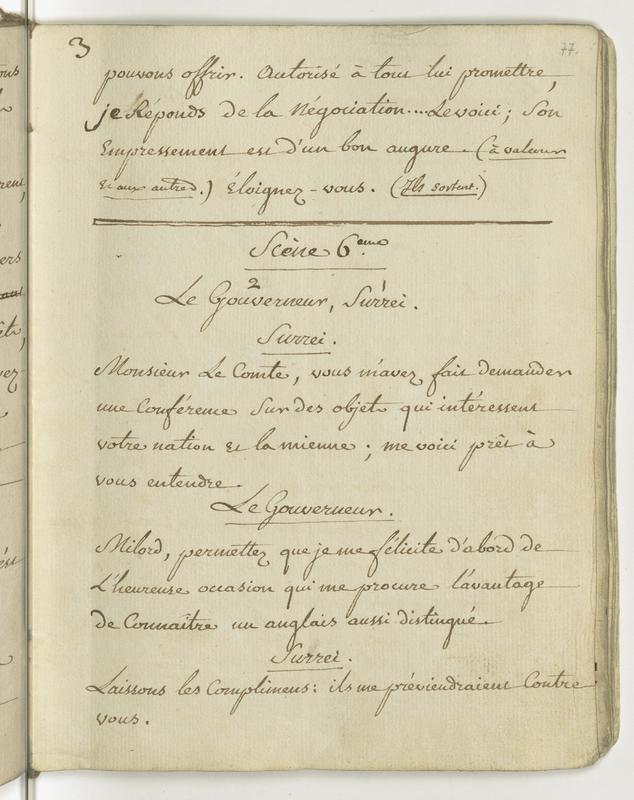 3
77.
pouvons offrir. Autorisé à tout lui promettre,
je Réponds de la Négociation.... Le voici ; Son
Empressement est d'un bon augure. (à valcour
et aux autres.) Éloignez-vous. (Ils sortent.)
Scène 6eme.
2 1
Le Gouverneur, Surrei.
Surrei.
Monsieur Le Comte, vous m'avez fait demander
une Conférence Sur des objets qui intéressent
votre nation et la mienne ; me voici prêt à
vous entendre.
Le Gouverneur.
Milord, permettez que je me félicite d'abord de
L'heureuse occasion qui me procure l'avantage
de Connaitre un anglais aussi distingué.
Surrei.
Laissons les Complimens : ils me préviendraient Contre
vous.